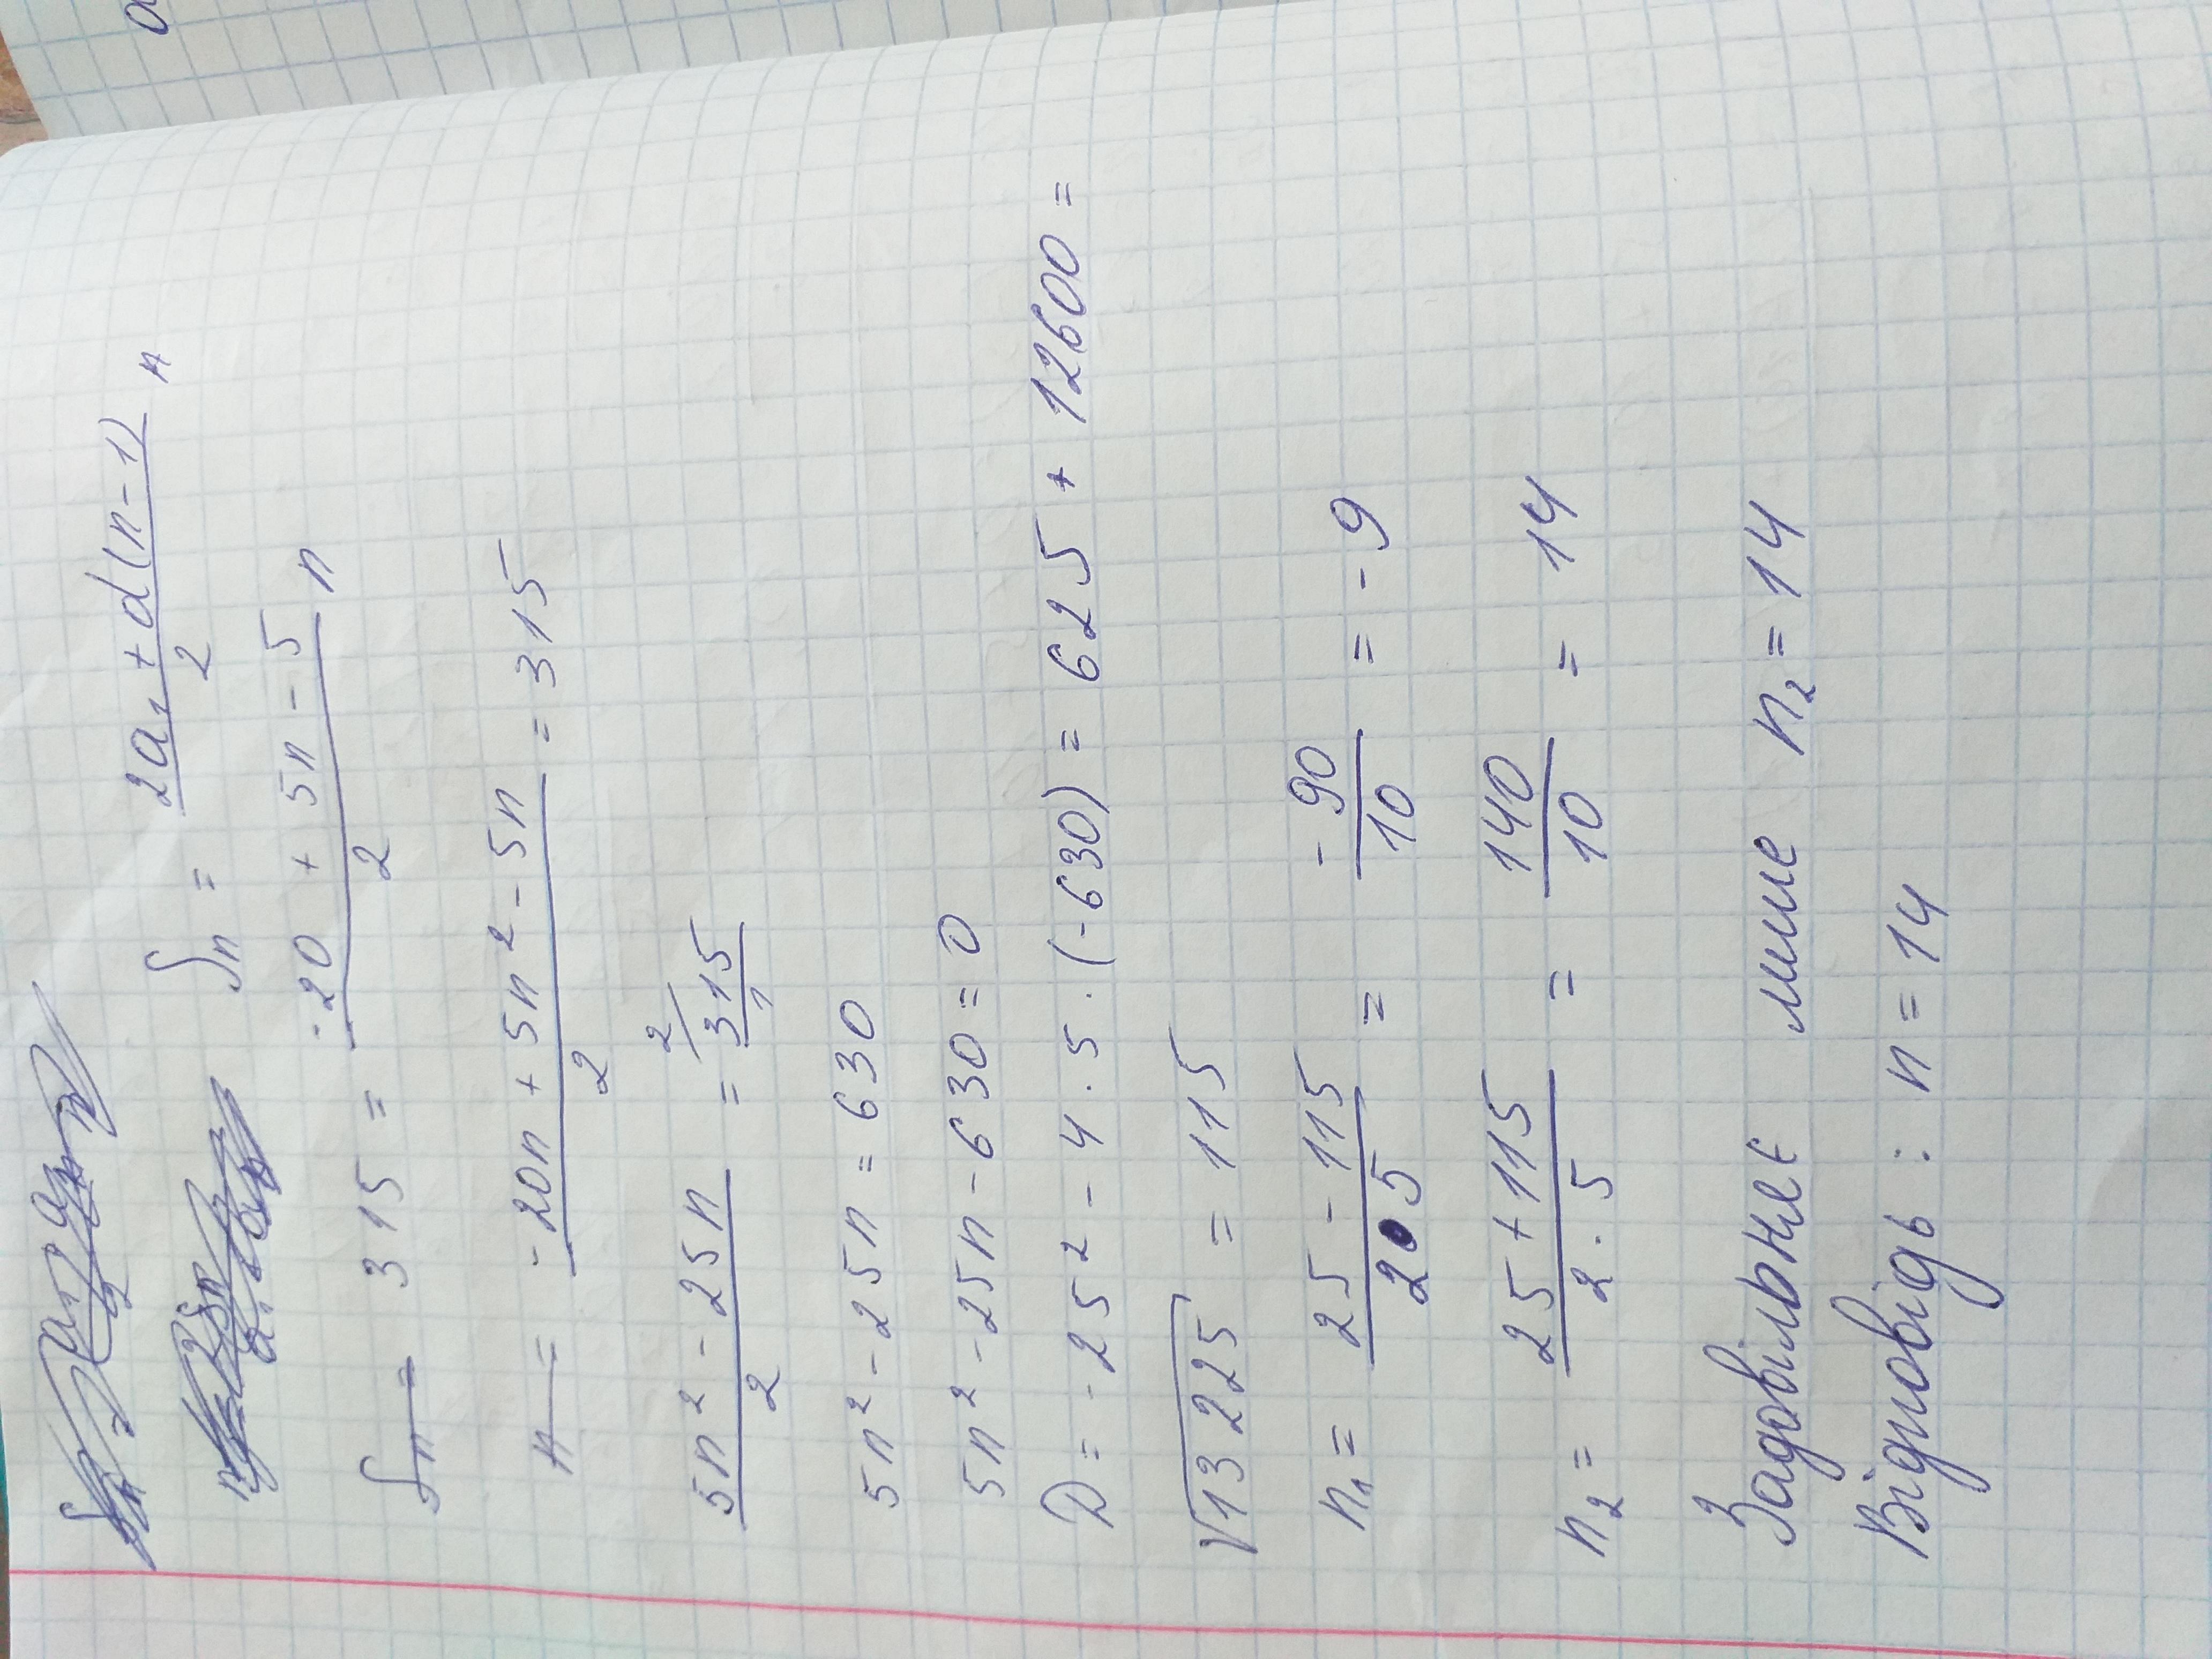 Sn = 2a₁ + d(n-1)/2 n
315 = -20 + 5n - 5/2 n
-20n + 5n² - 5n/2 = 315
5n² - 25n/2 = 315/1
5n² - 25n = 630
5n² - 25n - 630 = 0
D = -25² - 4 · 5 · (-630) = 625 + 12600 =
√13225 = 115
n₁ = 25 - 115/2·5 = -90/10 = -9
n₂ = 25 + 115/2·5 = 140/10 = 14
Задовільнеє лише n₂ = 14
Відповідь: n = 14